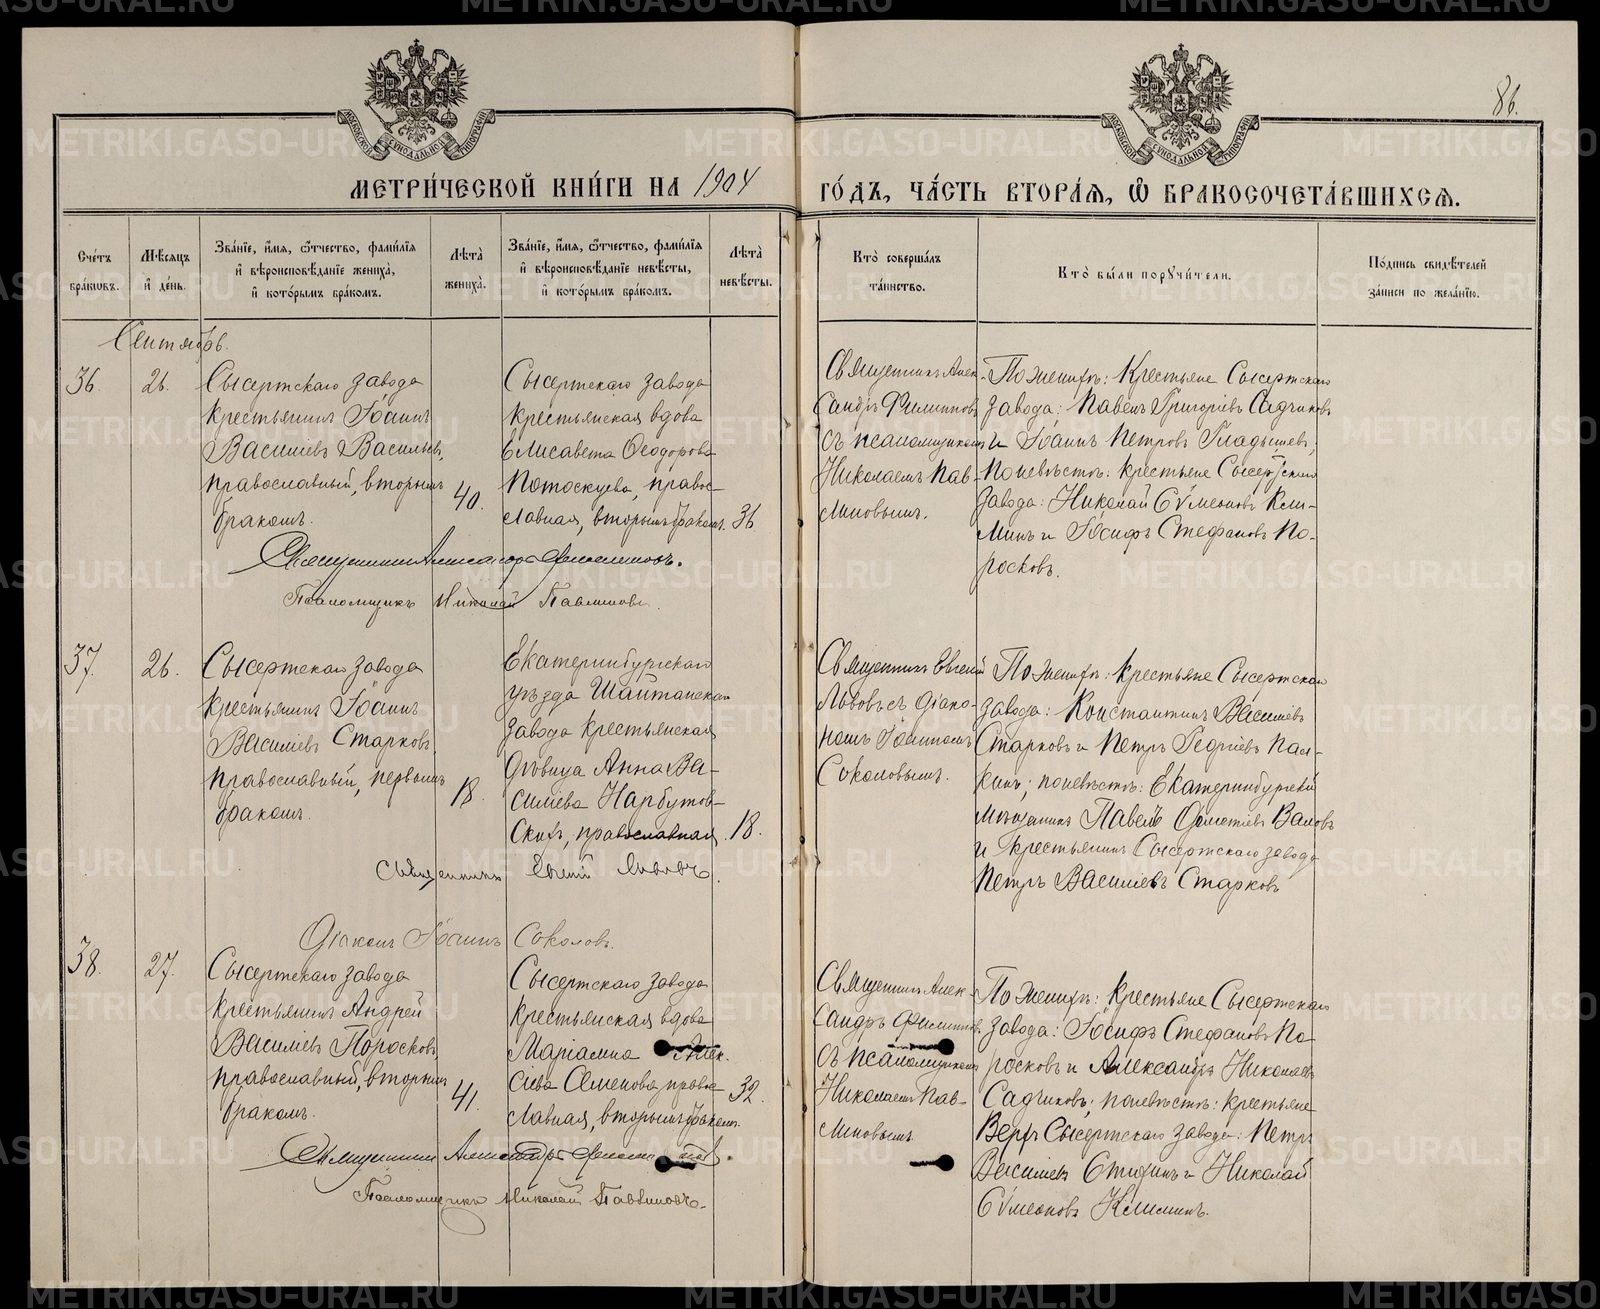 86.
МЕТРИ́ЧЕСКОЙ КНИ́ГИ НА 1904 ГО́ДЪ, ЧА́СТЬ ВТОРА́Я, Ѡ БРАКОСОЧЕТА́ВШИХСЯ.
Сче́тъ бра́ковъ.
Мѣ́сяцъ и҆ де́нь.
Зва́нїе, и҆́мя, ѻ҆́тчество, фами́лїя и҆ вѣроисповѣ́данїе жениха̀, и҆ кото́рымъ бра́комъ.
Лѣта̀ жениха̀.
Зва́нїе, и҆́мя, ѻ҆́тчество, фами́лїя и҆ вѣроисповѣ́данїе невѣ́сты, и҆ кото́рымъ бра́комъ.
Лѣта̀ невѣ́сты.
Кто̀ соверша́лъ та́инство.
Кто̀ бы́ли порꙋчи́тели.
По́дпись свидѣ́телей за́писи по жела́нїю.
Сентябрь.
36.
26.
Сысертскаго завода
крестьянинъ Іоаннъ
Василіевъ Васильевъ,
православный, вторымъ
бракомъ.
40.
Сысертскаго завода
крестьянская вдова
Елисавета Ѳеодорова
Потоскуева, право-
славная, вторымъ бракомъ.
36
Священникъ Алек-
сандръ Филипповъ
съ псаломщикомъ
Николаемъ Пав-
линовымъ.
По женихѣ: крестьяне Сысертскаго
завода: Павелъ Григоріевъ Садчиковъ
и Іоаннъ Петровъ Гладышевъ;
По невѣстѣ: крестьяне Сысертскаго
завода: Николай Сѵмеоновъ Кли-
минъ и Іосифъ Стефановъ По-
росковъ.
Священникъ Александръ Филипповъ.
Псаломщикъ Николай Павлиновъ.
37.
26.
Сысертскаго завода
крестьянинъ Іоаннъ
Василіевъ Старковъ,
православный, первымъ
бракомъ.
18.
Екатеринбургскаго
уѣзда Шайтанскаго
завода крестьянская
дѣвица Анна Ва-
силіева Нарбутов-
скихъ, православная
18.
Священникъ Евгеній
Львовъ съ діако-
номъ Іоанномъ
Соколовымъ.
По женихѣ: крестьяне Сысертскаго
завода: Константинъ Василіевъ
Старковъ и Петръ Георгіевъ Пал-
кинъ; по невѣстѣ: Екатеринбургскій
мѣщанинъ Павелъ Валовъ
и крестьянинъ Сысертскаго завода
Петръ Василіевъ Старковъ
Священникъ Евгеній Львовъ.
Діаконъ Іоаннъ Соколовъ.
38.
27.
Сысертскаго завода
крестьянинъ Андрей
Василіевъ Поросковъ,
православный, вторымъ
бракомъ.
41.
Сысертскаго завода
крестьянская вдова
Маріамна Алек-
сіева Семенова, право-
славная, вторымъ бракомъ.
32.
Священникъ Алек-
сандръ Филипповъ
съ псаломщикомъ
Николаемъ Пав-
линовымъ
По женихѣ: крестьяне Сысертскаго
завода: Іосифъ Стефановъ По-
росковъ и Александръ Николаевъ
Садчиковъ; по невѣстѣ: крестьяне
Верхъ Сысертскаго завода: Петръ
Василіевъ и Николай
Сѵмеоновъ Климинъ.
Священникъ Александръ Филипповъ.
Псаломщикъ Николай Павлиновъ.
METRIKI.GASO-URAL.RU